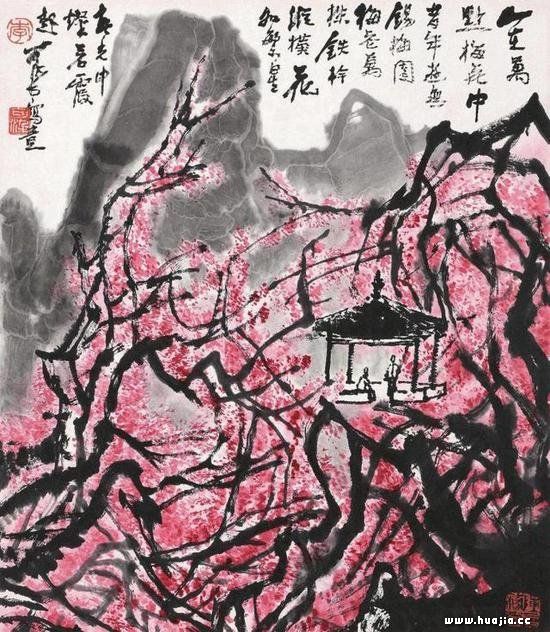 人在萬
點梅花中
昔年遊無
錫梅園
梅花萬
株鐵幹
縱橫花
如繁星
春光中
燦若霞
起 可染
李
www.huajia.cc